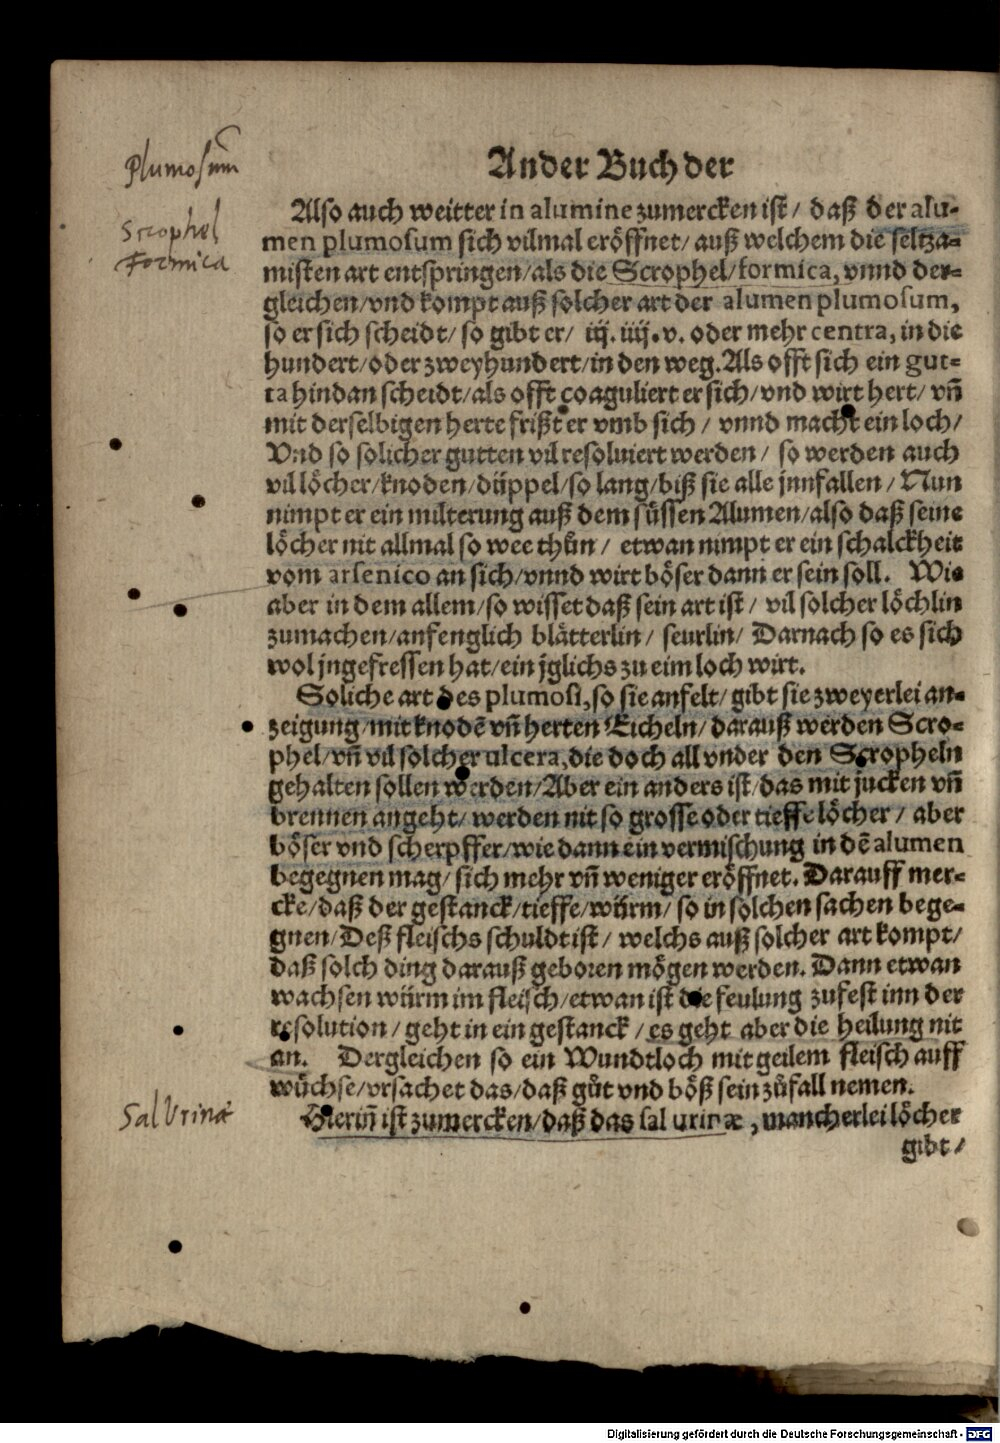 Ander Buch der
Plumosum̄
Scrophel
Formica
Also auch weitter in alumine zumercken ist/ daß der alu-
men plumosum sich vilmal eröffnet/ auß welchem die seltza-
misten art entspringen/als die Scrophel/formica, vnnd der-
gleichen/vnd kompt auß solcher art der alumen plumosum,
so er sich scheidt/ so gibt er/ iij. iiij. v. oder mehr centra, in die
hundert/oder zweyhundert/in den weg. Als offt sich ein gut-
ta hindan scheidt/als offt coaguliert er sich/vnd wirt hert/ vñ
mit derselbigen herte frißt er vmb sich / vnnd macht ein loch/
Vnd so solicher gutten vil resoluiert werden / so werden auch
vil löcher/knoden/düppel/so lang/biß sie alle jnnfallen / Nun
nimpt er ein milterung auß dem süssen Alumen/also daß seine
löcher nit allmal so wee thůn / etwan nimpt er ein schalckheit
vom arsenico an sich/vnnd wirt böser dann er sein soll. Wie
aber in dem allem/so wisset daß sein art ist / vil solcher löchlin
zumachen/anfenglich blätterlin / seurlin/ Darnach so es sich
wol jngefressen hat/ein jglichs zu eim loch wirt.
Soliche art des plumosi, so sie anfelt/ gibt sie zweyerlei an-
zeigung/mit knodē vñ herten Eicheln/ darauß werden Scro-
phel/vñ vil solcher ulcera, die doch all vnder den Scropheln
gehalten sollen werden/Aber ein anders ist/das mit jucken vñ
brennen angeht/ werden nit so grosse oder tieffe löcher / aber
böser vnd scherpffer/wie dann ein vermischung in dē alumen
begegnen mag/ sich mehr vñ weniger eröffnet. Darauff mer-
cke/daß der gestanck/tieffe/würm/ so in solchen sachen bege-
gnen/Deß fleischs schuldt ist / welchs auß solcher art kompt/
daß solch ding darauß geboren mögen werden. Dann etwan
wachsen würm im fleisch/etwan ist die feulung zufest inn der
resolution / geht in ein gestanck / es geht aber die heilung nit
an. Dergleichen so ein Wundtloch mit geilem fleisch auff
wüchse/vrsachet das/daß gůt vnd böß sein zůfall nemen.
Sal Urinæ
Hierin̄ ist zumercken/daß das sal urinæ, mancherlei löcher
gibt/
Digitalisierung gefördert durch die Deutsche Forschungsgemeinschaft - DFG